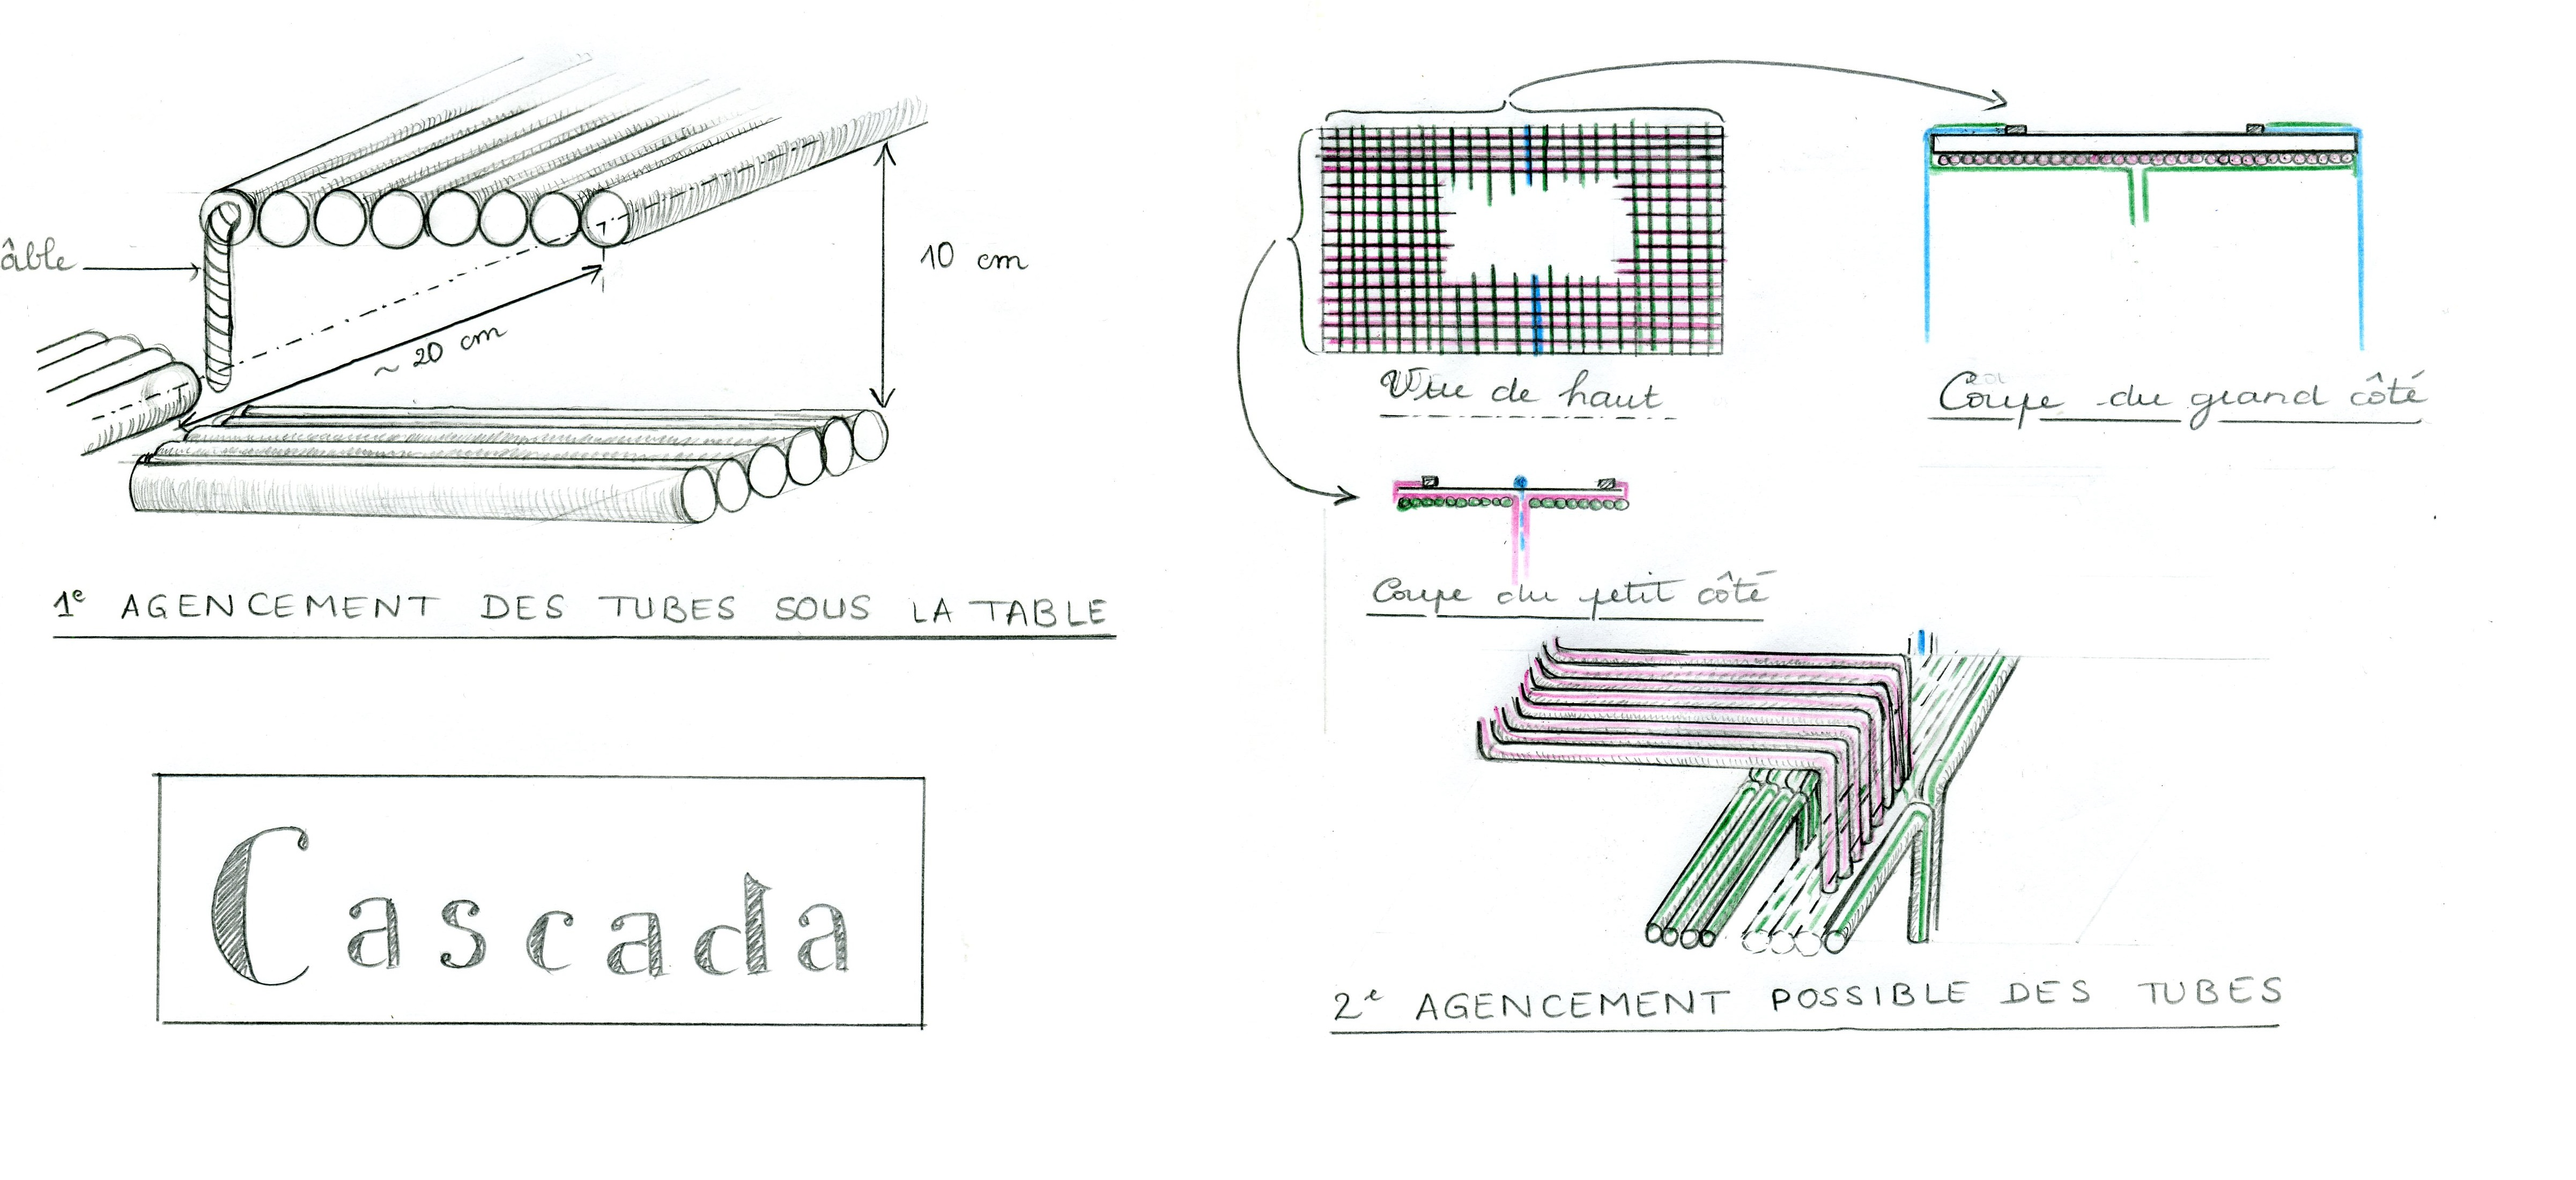 âble
10 cm
~ 20 cm
1e AGENCEMENT DES TUBES SOUS LA TABLE
Cascada
Vue de haut
Coupe du grand côté
Coupe du petit côté
2e AGENCEMENT POSSIBLE DES TUBES